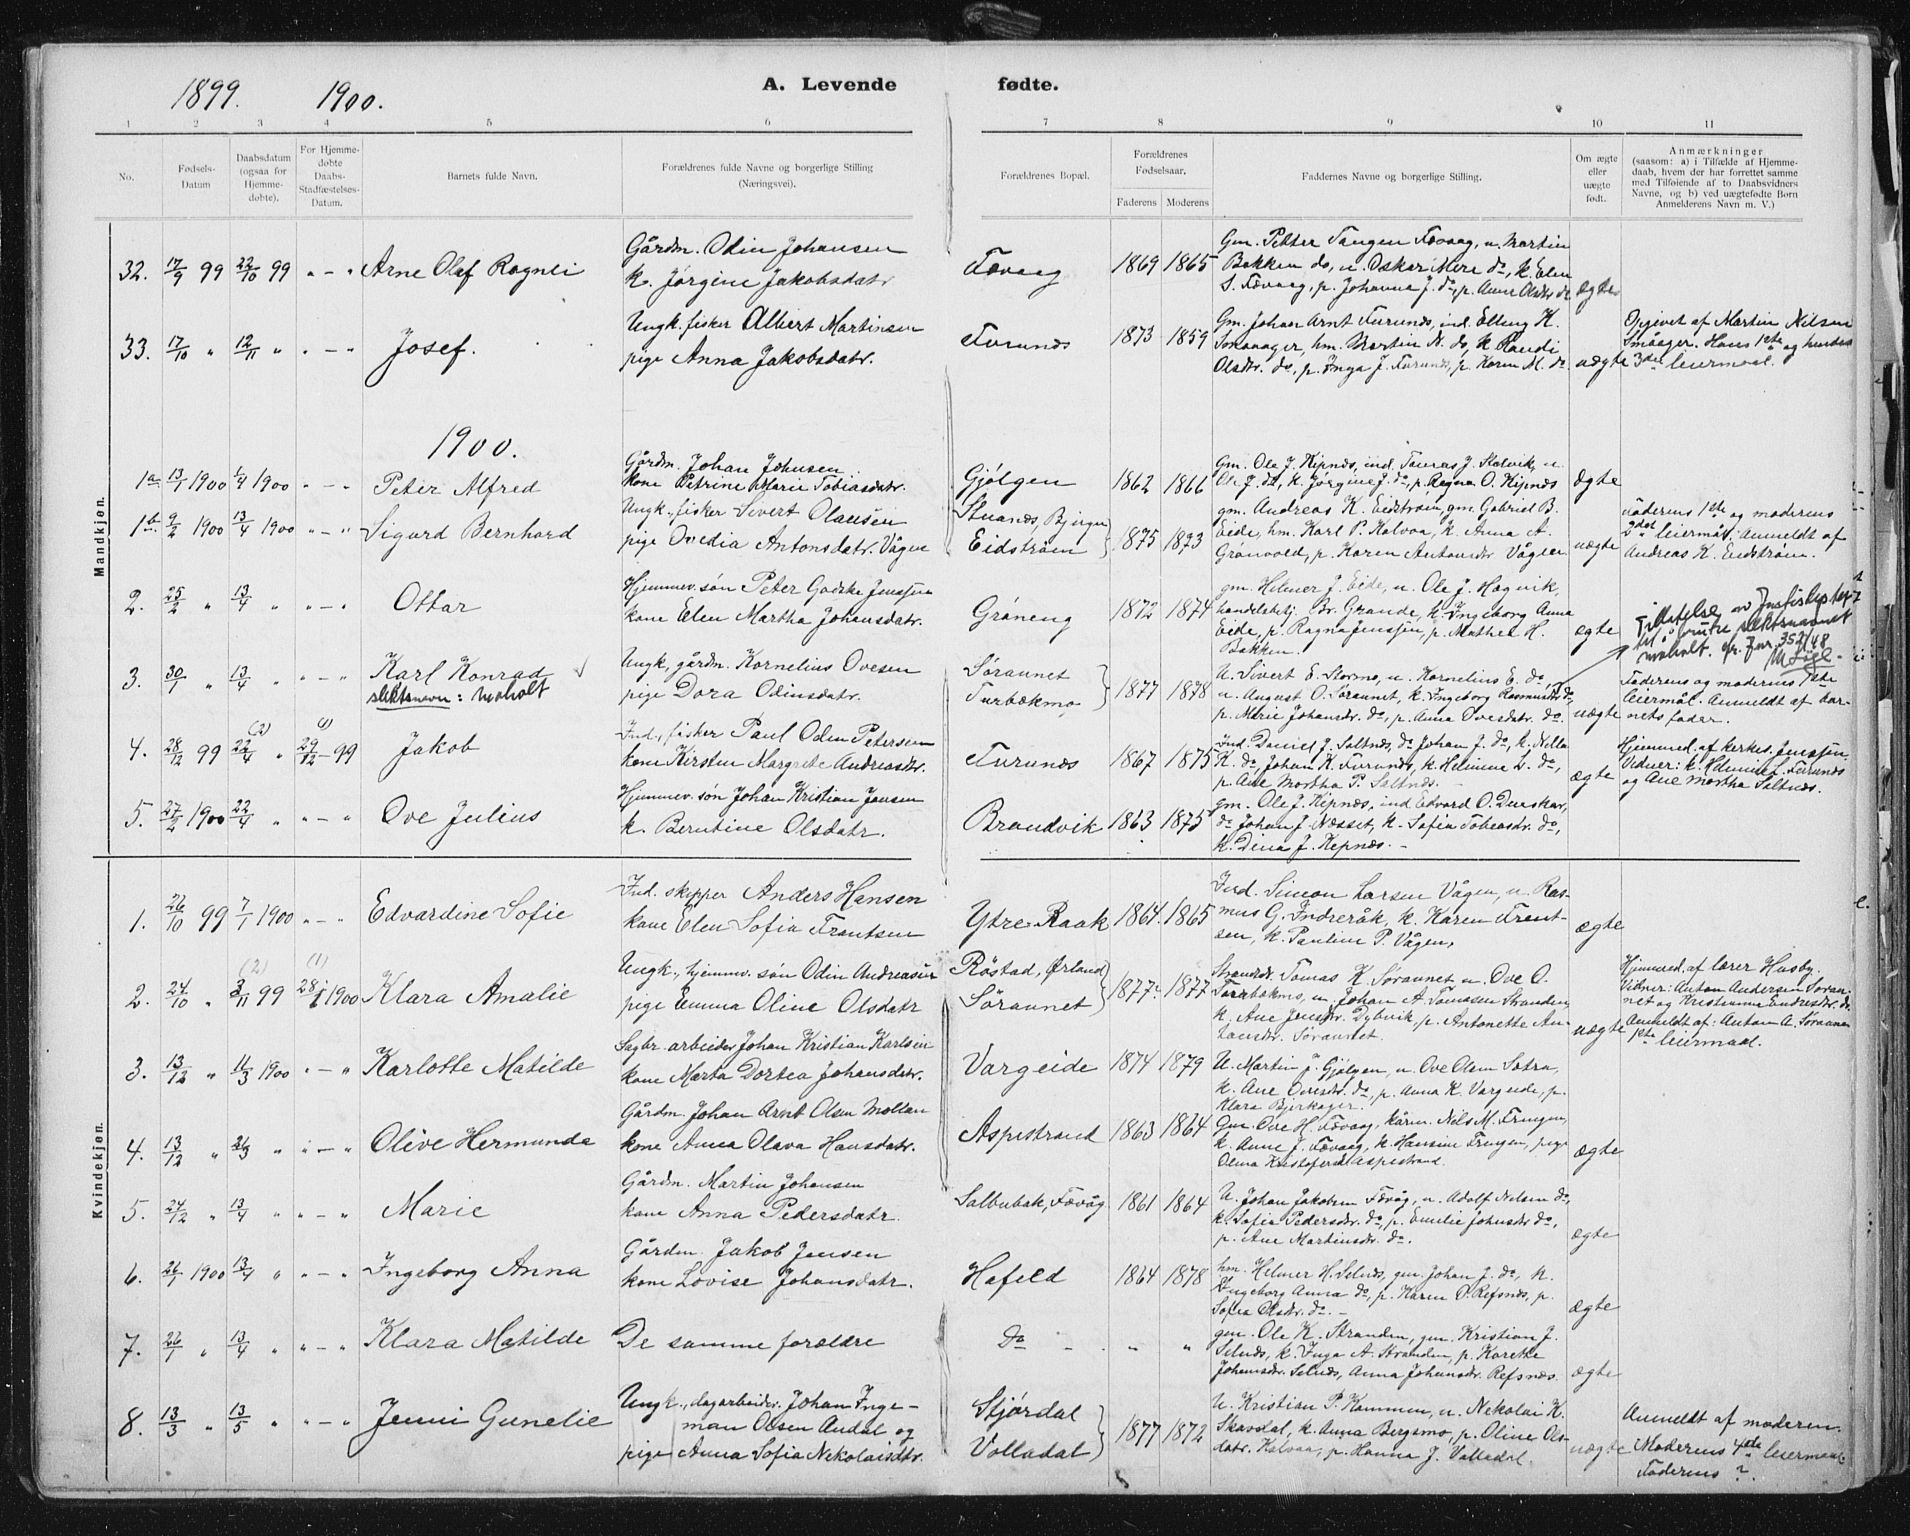 1899. 1900.
A. Levende fødte.
1 2 3 4 5 6 7 8 9 10 11
No.
Fødsels-
Datum
Daabsdatum
(ogsaa for
Hjemme-
døbte).
For Hjemme-
døbte
Daabs-
Stadfæstelses-
Datum.
Barnets fulde Navn.
Forældrenes fulde Navne og borgerlige Stilling
(Næringsvei).
Forældrenes Bopæl.
Forældrenes
Fødselsaar.
Faderens Moderens
Faddernes Navne og borgerlige Stilling.
Om ægte
eller
uægte
født.
Anmærkninger
(saasom: a) i Tilfælde af Hjemme-
daab, hvem der har forrettet samme
med Tilføiende af to Daabsvidners
Navne, og b) ved uægtefødte Børn
Anmelderens Navn m. V.)
Mandkjøn.
32. 17/9 99 22/10 99 " – " Arne Olaf Ragnli
Gårdm. Odin Johansen
k. Jørgine Jakobsdatr
Fævaag 1869 1865
Gm. Petter Tangen Fævaag, u. Martin
Bakken do, u. Oskar Mere do, k. Elen
S. Fævaag, p. Johanna J. do, p. Anne Olsdtr do
ægte
33. 17/10 " 12/11 " " – " Josef.
Ungk. fisker Albert Martinsen
pige Anna Jakobsdatr.
Furunes 1873 1859
Gm. Johan Arnt Furunes, ind. Elling K.
Småager, hm. Martin N. do, k. Randi
Olsdtr. do, p. Inga J. Furunes, p. Karen M. do
uægte
Opgivet af Martin Nilsen
Småager. Hans 1ste og hendes
3die leiermaal.
1900.
1a 13/1 1900 1/4 1900 " – " Peter Alfred
Gårdm. Johan Johnsen
kone Petrine Marie Tobiasdatr.
Gjølgen 1862 1866
Gm. Ole J. Kipnes, ind. Tomas J. Kalvik, u.
Ole J. do, k. Jørgine J. do, p. Regna O. Kipnes
ægte
1b. 9/2 1900 13/4 1900 " – " Sigurd Bernhard
Ungk., fisker Sivert Olausen
pige Ovedia Antonsdatr. Vågen
Stuanes, Bjugn
Eidstrøm 1875 1873
gm. Andreas K. Eidstrøm, gm. Gabriel B.
Eide, hm. Karl P. Kalvaa, k. Anna A.
Grønvold, p. Karen Antonsdtr Vågen
uægte
Faderens 1ste og moderens
2det leiermål. Anmeldt af
Andreas K. Eidstrøm.
2. 25/2 " 13/4 " " – " Ottar
Hjemmev. søn Peter Godske Jenssen
kone Elen Martha Johansdatr.
Grøneng 1872 1874
gm. Helmer J. Eide, u. Ole J. Hegvik,
handelsbetj. Br. Grande, k. Ingeborg Anna
Eide, p. Ragna Jenssen, p. Mathea H.
Bakken.
ægte
3. 30/1 " 13/4 " " – " Karl Konrad
slektsnavn: Moholt
Ungk, gårdm. Kornelius Ovesen
pige Dora Odinsdatr.
Søraunet
Furbækmo 1877 1878
U. Sivert E. Stormo, u. Kornelius E. do,
u. August O. Søraunet, k. Ingeborg Rasmusdtr do,
p. Marie Johansdtr. do, p. Anna Ovesdatr. do.
uægte
Tillatelse av Justisdep.
til å endre slektsnavnet
Moholt. Jnr 357/48
Faderens og moderens 1ste
leiermål. Anmeldt af bar-
nets fader.
4. 28/12 99 (2) 22/4 " (1) 29/12 – 99 Jakob
Ind., fisker Paul Odin Petersen
kone Kirsten Margrete Andreasdtr.
Furunes 1867 1875
Ind. Daniel J. Saltnes, do Johan J. do, k. Nella
K. do, Johan K. Furunes, k. Helmine L. do,
p. Ane Martha P. Saltnes.
ægte
Hjemmed. af kirkes. Jenssen
Vidner: k. Helmine L. Furunes
og Ane Martha Saltnes.
5. 27/2 1900 22/4 " " – " Ove Julius
Hjemmev. søn Johan Kristian Jensen
k. Berntine Olsdatr.
Brandvik 1863 1875
gm. Ole J. Kipnes, ind Edvard O. Duuskar,
do Johan J. Næsset, k. Sofia Tobiasdtr. do,
k. Dina J. Kipnes. –
Kvindekjøn.
1. 26/10 99 7/1 1900 " – " Edvardine Sofie
Ind. skipper Anders Hansen
kone Elen Sofia Frantsen
Ytre Raak 1864. 1865
Ind. Simon Larsen Vågen, u. Ras-
mus G. Indreråk, k. Karen Frent-
sen, k. Pauline P. Vågen,
ægte
2. 24/10 " (2) 3/11 99 (1) 28/1 1900 Klara Amalie
Ungk., hjemmv. søn Odin Andreassen
pige Emma Oline Olsdatr
Røstad, Ørland
Søraunet 1877. 1877
Strandsr. Tomas K. Søraunet, u. Ove O.
Furrbækmo, u. Johan A. Tomassen Stranden,
k. Ane Jensdtr Dybvik, p. Antonette An-
tonsdtr. Søraunet.
uægte
Hjemmed. af lærer Husby.
Vidner: Anton Andersen Sørau-
net og Kristianna Endresdtr. do
Anmeldt af: Anton A. Søraunet
1ste leiermaal.
3. 13/12 " 11/3 1900 " – " Karlotte Matilde
Sagbr. arbeider Johan Kristian Karlsen
kone Marta Dortea Johansdatr.
Vargeide 1874 1879
U. Martin J. Gjølgen, u. Ove Olsen Sætra,
k. Ane Ovesdtr. do, p. Anna K. Vargeide, p.
Klara Bjerkager.
4. 13/12 " 26/3 " " – " Olive Hermunda
Gårdm. Johan Arnt Olsen Moltau
kone Anna Olava Hansdatr.
Aspestrand 1863 1864
Gm. Ove H. Fævaag, kårm. Nels M. Frengen,
k. Anne J. Fævaag, k. Hansine Frengen, pige
Olina Kristofersd. Aspestrand.
ægte
5. 24/12 " 13/4 " " – " Marie
Gårdm. Martin Johansen
kone Anna Pedersdatr.
Salbubak, Fævåg 1861 1864
U. Johan Jakobsen Fævåg, u. Adolf Nelsen do,
k. Sofia Pedersdtr. do, p. Emilie Johnsdtr do,
p. Ane Martinsdtr. do.
ægte
6. 26/1 1900 13/4 " " – " Ingeborg Anna
Gårdm. Jakob Jensen
kone Lovise Johansdatr.
Hafeld 1864 1878
hm. Helmer H. Selnes, gm. Johan J. do, k.
Ingeborg Anna do, p. Karen O. Refsnes, p.
Sofia Olsdtr. do. –
ægte
7. 26/1 " 13/4 " " – " Klara Matilde
De samme forældre
Do – . " "
gm. Ole K. Stranden, gm. Kristian J.
Selnes, k. Inga A. Stranden, p. Karethe
Johansdtr. Selnes, Anna Johansdtr. Refsnes.
ægte
8. 13/3 " 13/5 " " – " Jenni Gunelie
Ungk., dagarbeider Johan Inge-
man Olsen Audal og
pige Anna Sofia Nekolaisdtr.
Stjørdal
Volladal 1877 1872
U. Kristian P. Hammen, u. Nekolai K.
Skavdal, k. Anna Bergsmo, p. Oline Ols-
datr. Kalvaa, p. Hanna J. Valladal.
uægte
Anmeldt af moderen.
Moderens 4de leiermaal.
Faderens ?